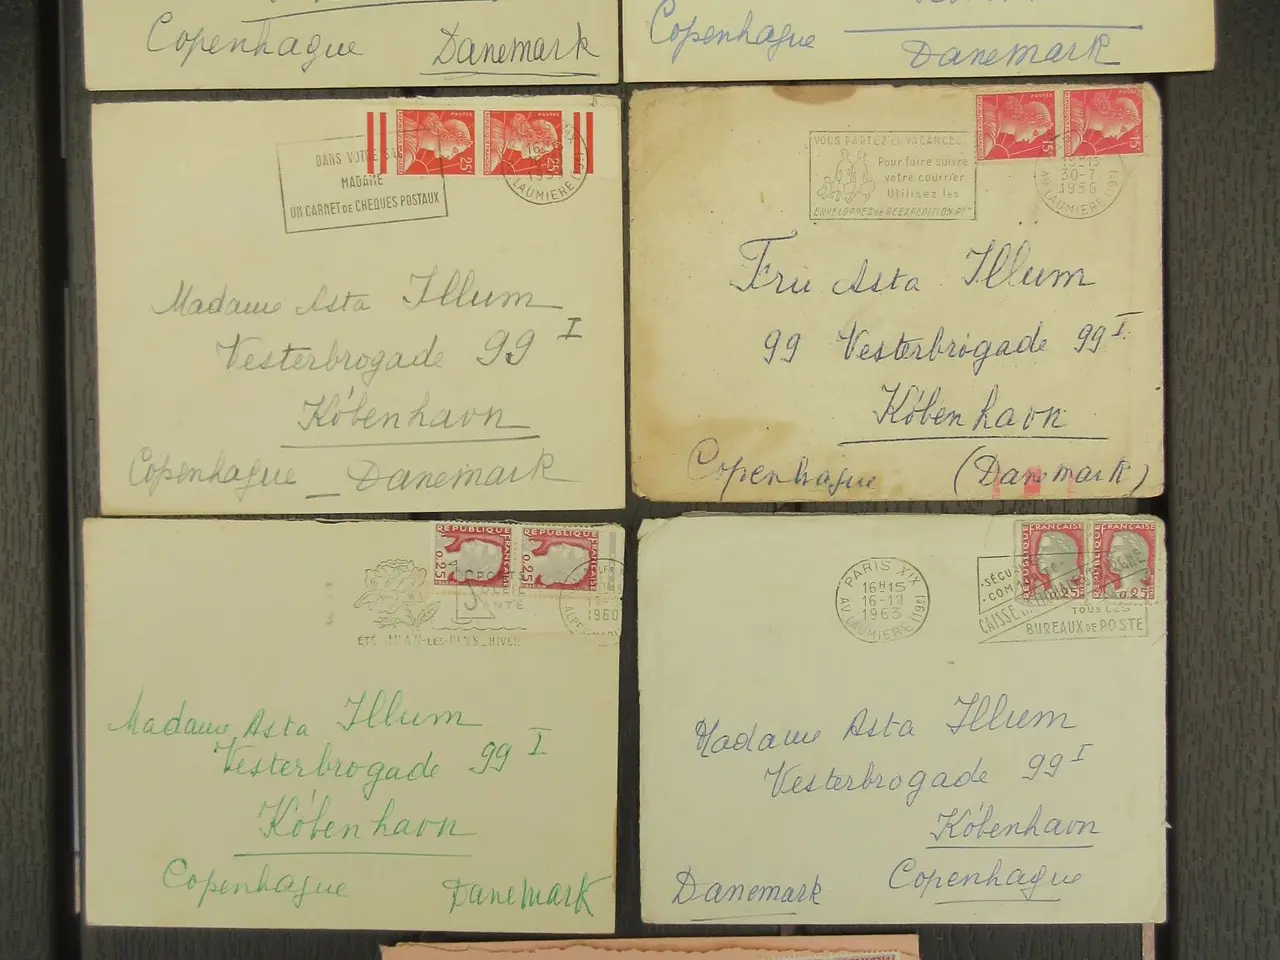 Copenhague Danemark
Copenhague
Danemark
DANS VOTRE SAC
MADAME
UN CARNET DE CHEQUES POSTAUX
POSTES
25F
25F
LAUMIERE (19e)
Madame Asta Illum
Vesterbrogade 99 I
Kóbenhavn
Copenhague _ Danemark
VOUS PARTEZ EN VACANCES
Pour faire suivre
votre courrier
Utilisez les
ENVELOPPES DE REEXPEDITION
POSTES
15F
POSTES
15F
30-7
1956
AV. LAUMIERE (19e)
Fru Asta Illum
99 Vesterbrógade 99 I.
Kóbenhavn
Copenhague (Danemark)
REPUBLIQUE FRANÇAISE
0,25
REPUBLIQUE FRANÇAISE
0,25
SANTÉ
ÉTÉ JUAN-LES-PINS HIVER
1960
Madame Asta Illum
Vesterbrogade 99 I
Kóbenhavn
Copenhague Danemark
PARIS XIX
16H15
16-11
1963
AV. LAUMIERE (19e)
REPUBLIQUE FRANÇAISE
0,25
REPUBLIQUE FRANÇAISE
0,25
TOUS LES
BUREAUX DE POSTE
Madame Asta Illum
Vesterbrogade 99 I
Kóbenhavn
Danemark Copenhague